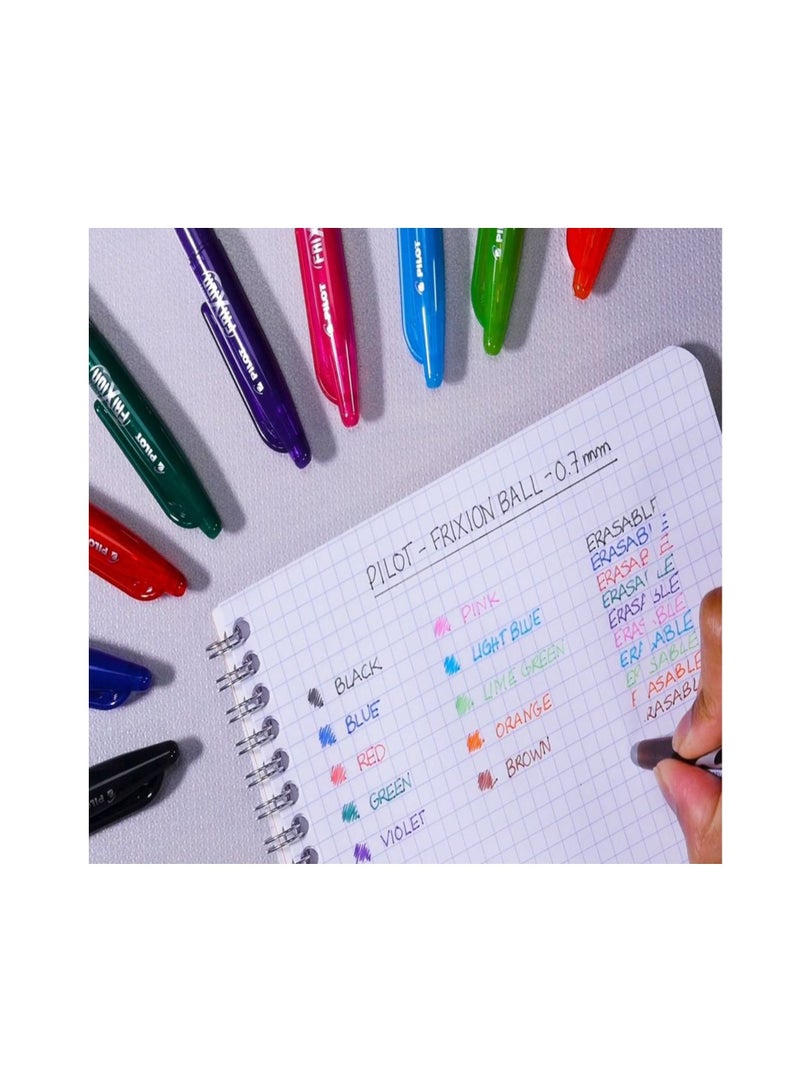 FRIXION
PILOT
FRIXION
PILOT
FRIX
PILOT
PILOT
PILOT
PILOT
PILOT - FRIXION BALL - 0.7mm
BLACK
BLUE
RED
GREEN
VIOLET
PINK
LIGHT BLUE
LIME GREEN
ORANGE
BROWN
ERASABLE
ERASAB
ERASAB E
ERASA LE
ERASA BLE
ERAS BLE
ER ABLE
E SABLE
F ASABLE
RASABL